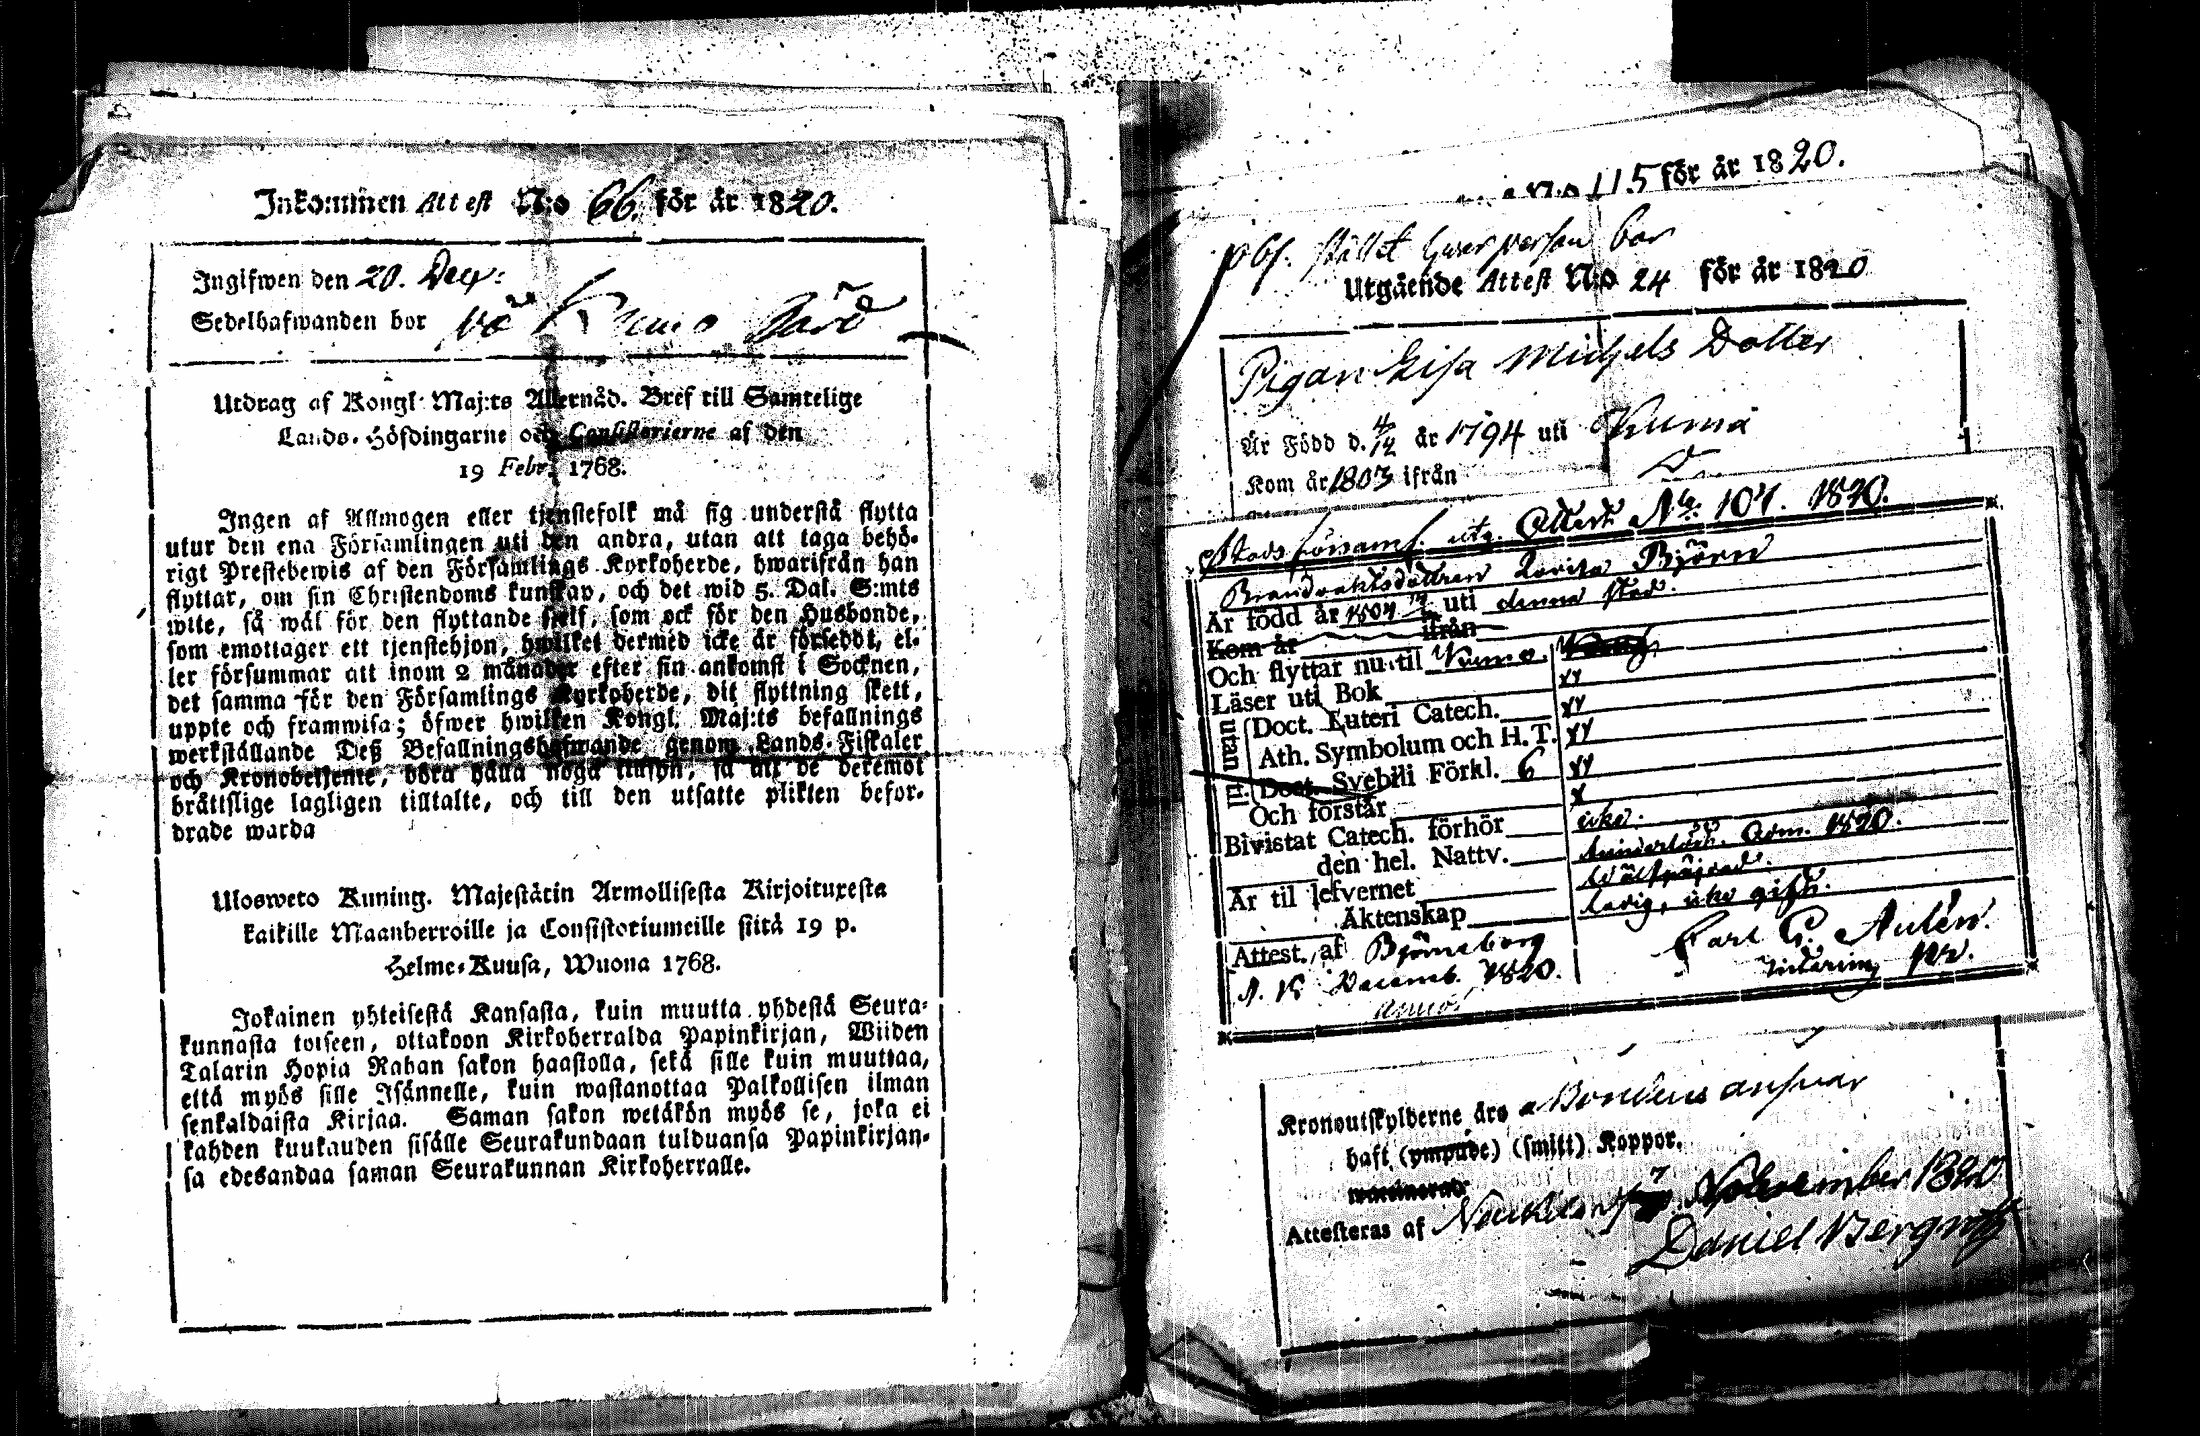 Inkommen Attest N:o 66. för år 1820.
Ingifwen den 20. Dec:
Sedelhafwanden bor på Kumo Gård
Utdrag af Kongl. Maj:ts Allernåd. Bref till Samtelige
Lands-Höfdingarne och Consistorierne af den
19 Febr. 1768.
Ingen af Allmogen eller tjenstefolk må sig understå flytta
utur den ena Församlingen uti den andra, utan att taga behö-
rigt Prestebewis af den Församlings Kyrkoherde, hwarifrån han
flyttar, om sin Christendoms kunskap, och det wid 5. Dal. S:mts
wite, så wäl för den flyttande sjelf, som ock för den Husbonde,
som emottager ett tjenstehjon, hwilket dermed icke är försedt, el-
ler försummar att inom 2 månader efter sin ankomst i Socknen,
det samma för den Församlings Kyrkoherde, dit flyttning skett,
uppte och framwisa; öfwer hwilken Kongl. Maj:ts befallnings
werkställande Deß Befallningshafwande genom Lands-Fiskaler
och Kronobetjente, böra hålla noga tillsyn, så att de deremot
bråttslige lagligen tilltalte, och till den utsatte plikten befor-
drade warda
Ulosweto Kuning. Majestätin Armollisesta Kirjoituxesta
kaikille Maanherroille ja Consistoriumeille siitä 19 p.
Helme-Kuusa, Wuona 1768.
Jokainen yhteisestä Kansasta, kuin muutta yhdestä Seura-
kunnasta toiseen, ottakoon Kirkoherralda Papinkirjan, Wiiden
Talarin Hopia Rahan sakon haastolla, sekä sille kuin muuttaa,
että myös sille Isännelle, kuin wastanottaa Palkollisen ilman
senkaldaista Kirjaa. Saman sakon wetäkön myös se, joka ei
kahden kuukauden sisälle Seurakundaan tulduansa Papinkirjan-
sa edesandaa saman Seurakunnan Kirkoherralle.
N:o 115 för år 1820.
obs. stället hwar person bor
Utgående Attest N:o 24 för år 1820
Pigan Lisa Michels Dotter
Är Född d. 4/12 år 1794 uti Kumo
Kom år 1803 ifrån
Stads församl. utg. Attest No: 107. 1820.
Brandvaktsdottren Lovisa Björn
Är född år 1804 uti denna stad.
Kom år ifrån
Och flyttar nu til Kumo.
Läser uti Bok
utan til
Doct. Luteri Catech.
Ath. Symbolum och H. T.
Doct. Svebili Förkl. 6
Och förstår
Bivistat Catech. förhör icke.
den hel. Nattv. Adm. 1820.
Är til lefvernet wälfräjdad.
Äktenskap ledig, icke gift.
Attest. af Björneborg
d. 18 Decemb. 1820.
Carl G. Aulén.
Kronoutskylderne äro
haft (ympade) (smitt) Koppor.
waccinerad
Attesteras af 7 November 1820
Daniel